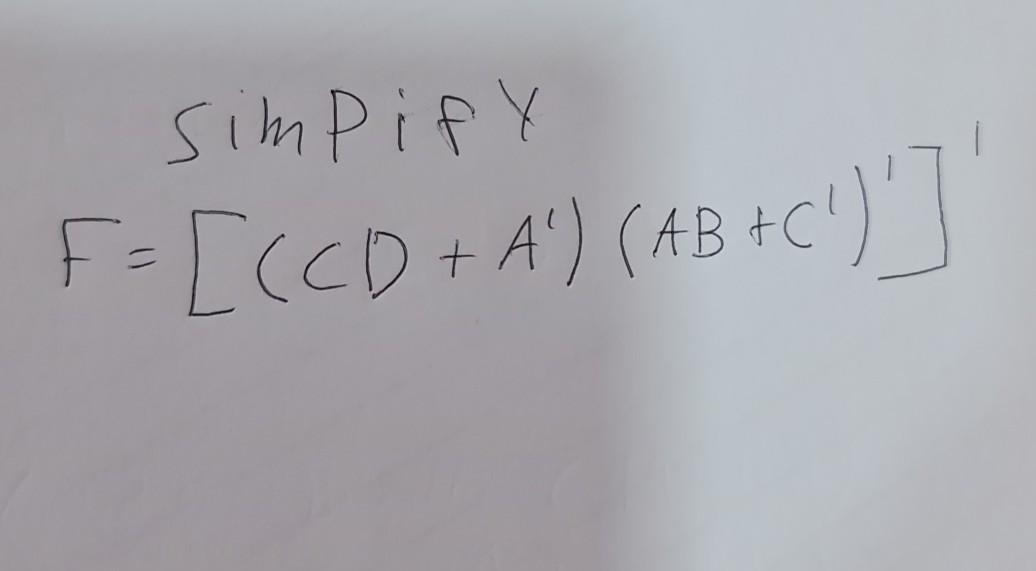 simpify
F = [(CD + A') (AB + C')']'